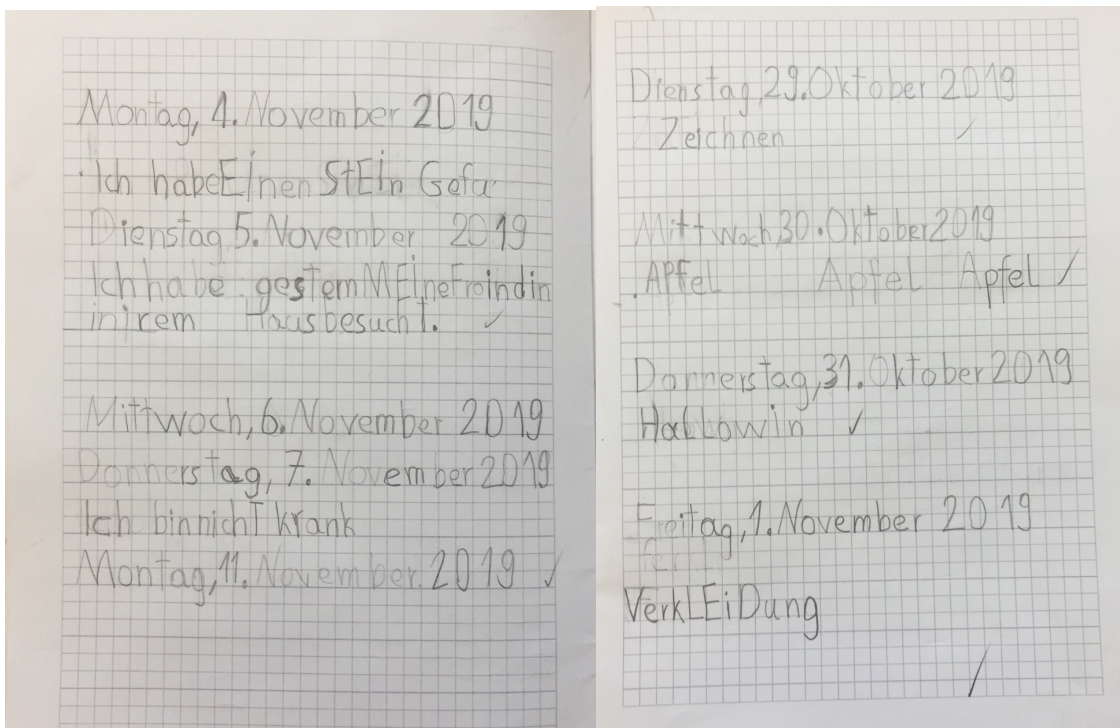 Montag, 4. November 2019
Ich habeEinen StEin Gefu
Dienstag, 5. November 2019
Ich habe gestern MEineFroindin
in irem Haus besucht.
Mittwoch, 6. November 2019
Donnerstag, 7. November 2019
Ich bin nicht krank
Montag, 11. November 2019
Dienstag, 29. Oktober 2019
Zeichnen
Mittwoch, 30. Oktober 2019
APfEL Apfel Apfel
Donnerstag, 31. Oktober 2019
HaLLowin
Freitag, 1. November 2019
VerkLEiDung